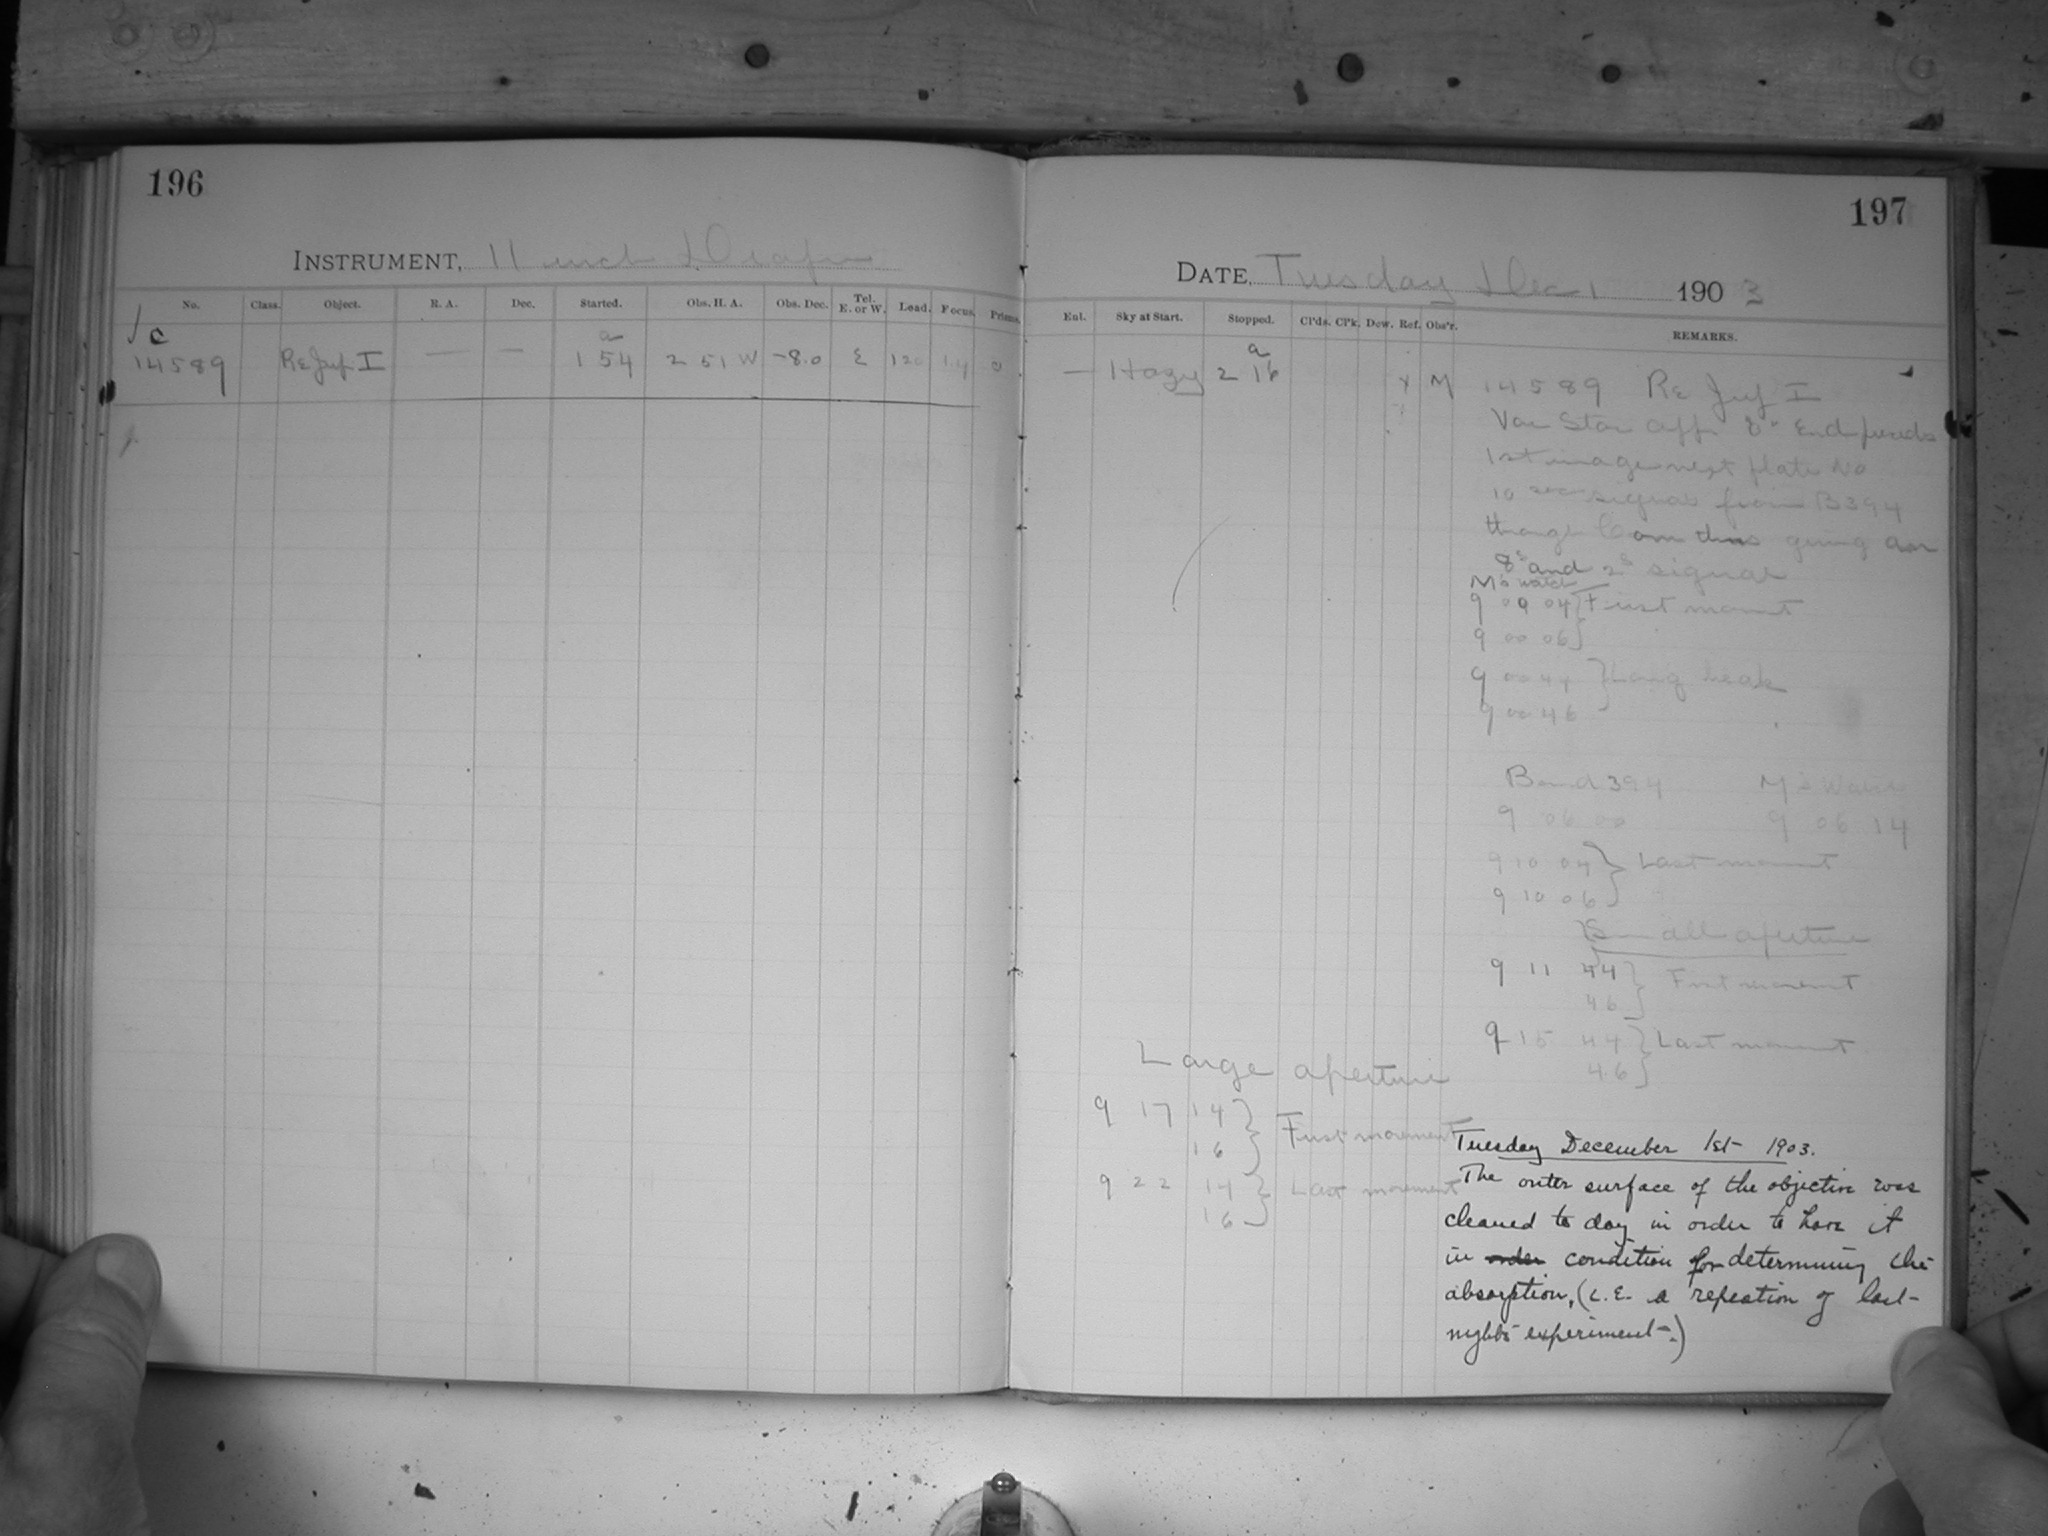 196
INSTRUMENT, 11 inch Draper
No. Class. Object. R. A. Dec. Started. Obs. H. A. Obs. Dec. Tel. E. or W. Load. Focus. Prisms.
c a
14589 Re Jup I — — 1 54 2 51 W -8.0 E 120 1.4 0
197
DATE, Tuesday Dec 1 1903
Enl. Sky at Start. Stopped. Cl'ds. Cl'k. Dew. Ref. Obs'r. REMARKS.
a
— Hazy 2 16 x M
14589 Re Jup I
Var Star app
1st image next plate No
10 sec signal from B394
through Com thus giving an
8s and 2s signal
M's Watch
9 00 04 } First movmt
9 00 06
9 00 44 } Long break
9 00 46
Bond 394 M's Watch
9 06 00 9 06 14
9 10 04 } Last movmt
9 10 06
Small aperture
9 11 44 } First movemt
46
9 15 44 } Last movmt
46
Large aperture
9 17 14 } First movement
16
9 22 14 } Last movement
16
Tuesday December 1st 1903.
The outer surface of the objective was
cleaned to day in order to have it
in order condition for determining the
absorption, (i.e. a repeation of last
nights experiment.)